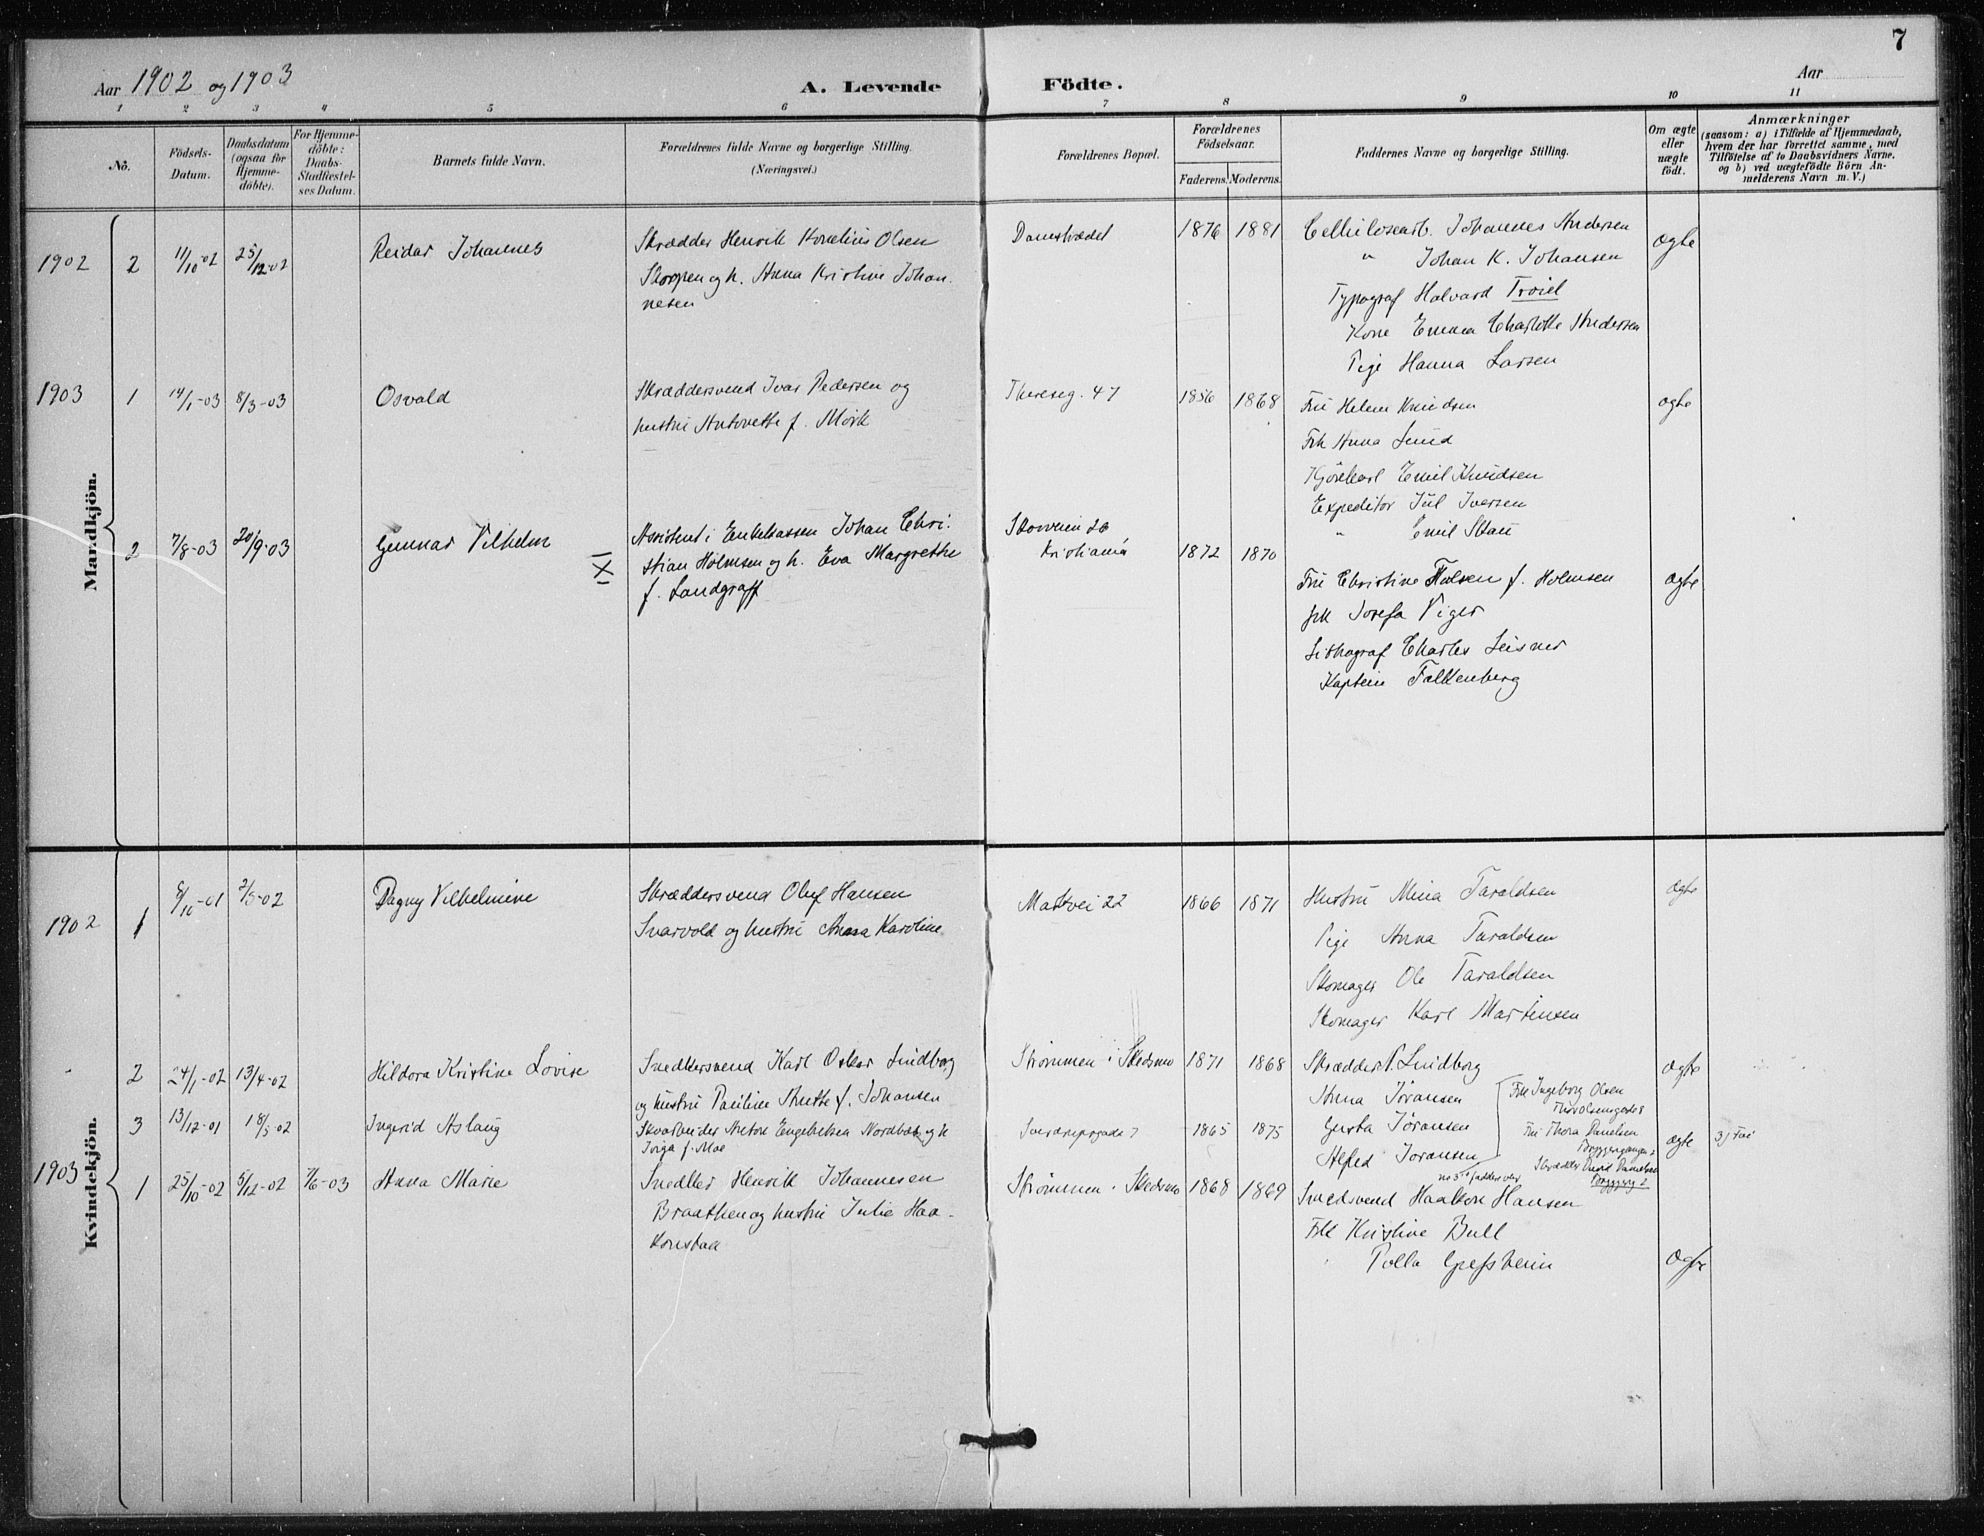 7
Aar 1902 og 1903
A. Levende Födte.
Aar
1 2 3 4 5 6 7 8 9 10 11
Nô.
Födsels-Datum.
Daabsdatum (ogsaa for Hjemme-döbte).
For Hjemme-döbte: Daabs-Stadfæstel-ses Datum.
Barnets fulde Navn.
Forældrenes fulde Navne og borgerlige Stilling. (Næringsvei.)
Forældrenes Bopæl.
Forældrenes Födselsaar.
Faderens. Moderens.
Faddernes Navne og borgerlige Stilling.
Om ægte eller uægte födt.
Anmærkninger
(saasom: a) i Tilfælde af Hjemmedaab, hvem der har forrettet samme, med Tilföielse af to Daabsvidners Navne, og b) ved uægtefödte Börn An-melderens Navn m. V.)
Mandkjön.
1902 2 11/10-02 25/12-02 Reidar Johannes
Skrædder Henrik Kornelius Olsen
Skorpen og h. Anna Kristine Johan-
nesen
Damstrædet 1876 1881
Cellulosearb. Johannes Andersen
" Johan K. Johansen
Typograf Halvard Troiel
Kone Emma Charlotte Andersen
Pige Hanna Larsen
ægte
1903 1 14/1-03 8/3-03 Osvald
Skræddersvend Ivar Pedersen og
hustru Antonette f. Mörk
Thereseg. 47 1856 1868
Fru Helene Knudsen
Frk Anna Lund
Kjörekarl Emil Knudsen
Expeditör Jul Iversen
" Emil Stau
ægte
2 7/8-03 20/9-03 Gunnar Vilhelm
X
Assistent i Enkekassen Johan Chri-
stian Holmsen og h. Eva Margrethe
f. Landgraff
Skovveien 26
Kristiania 1872 1870
Fru Christine Hulsen f. Holmsen
frk Josefa Viger
Lithograf Charles Leisner
Kaptein Falkenberg
ægte
Kvindekjön.
1902 1 8/10-01 2/3-02 Dagny Vilhelmine
Skræddersvend Oluf Hansen
Svarvold og hustru Anna Karoline
Maltvei 22 1866 1871
Hustru Mina Taraldsen
Pige Anna Taraldsen
Skomager Ole Taraldsen
Skomager Karl Martinsen
ægte
2 24/1-02 13/4-02 Hildora Kristine Lovise
Snedkersvend Karl Oskar Lindborg
og hustru Pauline Anette f. Johansen
Strømmen i Skedsmo 1871 1868
Skrædder P. Lindborg
Anna Jöransen
Gusta Jöransen
Alfred Joransen
ægte
3 13/12-01 18/5-02 Ingerid Aslaug
Skoarbeider Anton Engebretsen Nordbæk og h
Inga f. Moe
Sverdrupsgade 7 1865 1875
Frk Ingeborg Olsen
Thorvolsensgede 8
Fru Thora Danielsen
Bryggergangen 2
Skrædder David Danielsen
Bryggerg 2
no 3s faddere over
ægte
3) Frei
1903 1 25/10-02 5/12-02 7/6-03 Anna Marie
Snedker Henrik Johannesen
Braathen og hustru Julie Haa-
konsbak
Strømmen i Skedsmo 1868 1869
Smedsvend Haakon Hansen
Frk Kristine Bull
Polla Gressheim
ægte